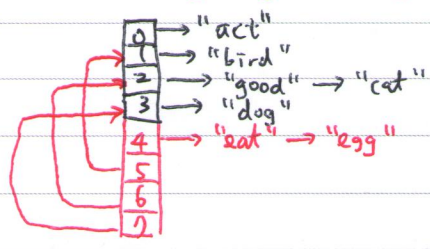 0 → "act"
1 → "bird"
2 → "good" → "cat"
3 → "dog"
4 → "eat" → "egg"
5
6
7